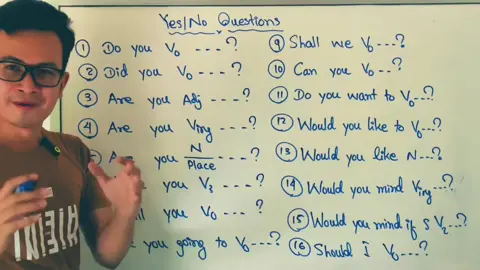 Yes/No Questions
① Do you V₀ ---?
② Did you V₀ ---?
③ Are you Adj ---?
④ Are you Ving ---?
Are you N/Place ---?
you V₃ ---?
you V₀ ---?
you going to V₀ ---?
⑨ Shall we V₀ ---?
⑩ Can you V₀ --?
⑪ Do you want to V₀ ---?
⑫ Would you like to V₀ ---?
⑬ Would you like N ---?
⑭ Would you mind Ving ---?
⑮ Would you mind if S V₂ ---?
⑯ Should I V₀ ---?